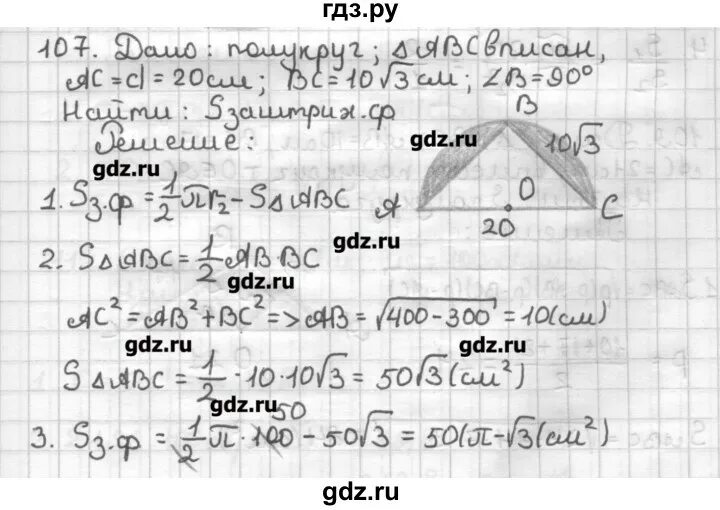 гдз.ру
107. Дано: полукруг; △ABC вписан,
AC = d = 20см; BC = 10√3 см; ∠B = 90°
Найти: Sзаштрих.ф
Решение:
B
10√3
A
O
C
20
gdz.ru
gdz.ru
1. Sз.ф = 1/2 πr₂ - S△ABC
gdz.ru
2. S△ABC = 1/2 AB·BC
gdz.ru
AC² = AB² + BC² => AB = √400-300 = 10(см)
gdz.ru
gdz.ru
S△ABC = 1/2 · 10 · 10√3 = 50√3 (см²)
gdz.ru
50
3. Sз.ф = 1/2 π · 100 - 50√3 = 50(π - √3(см²)
gdz.ru
gdz.ru